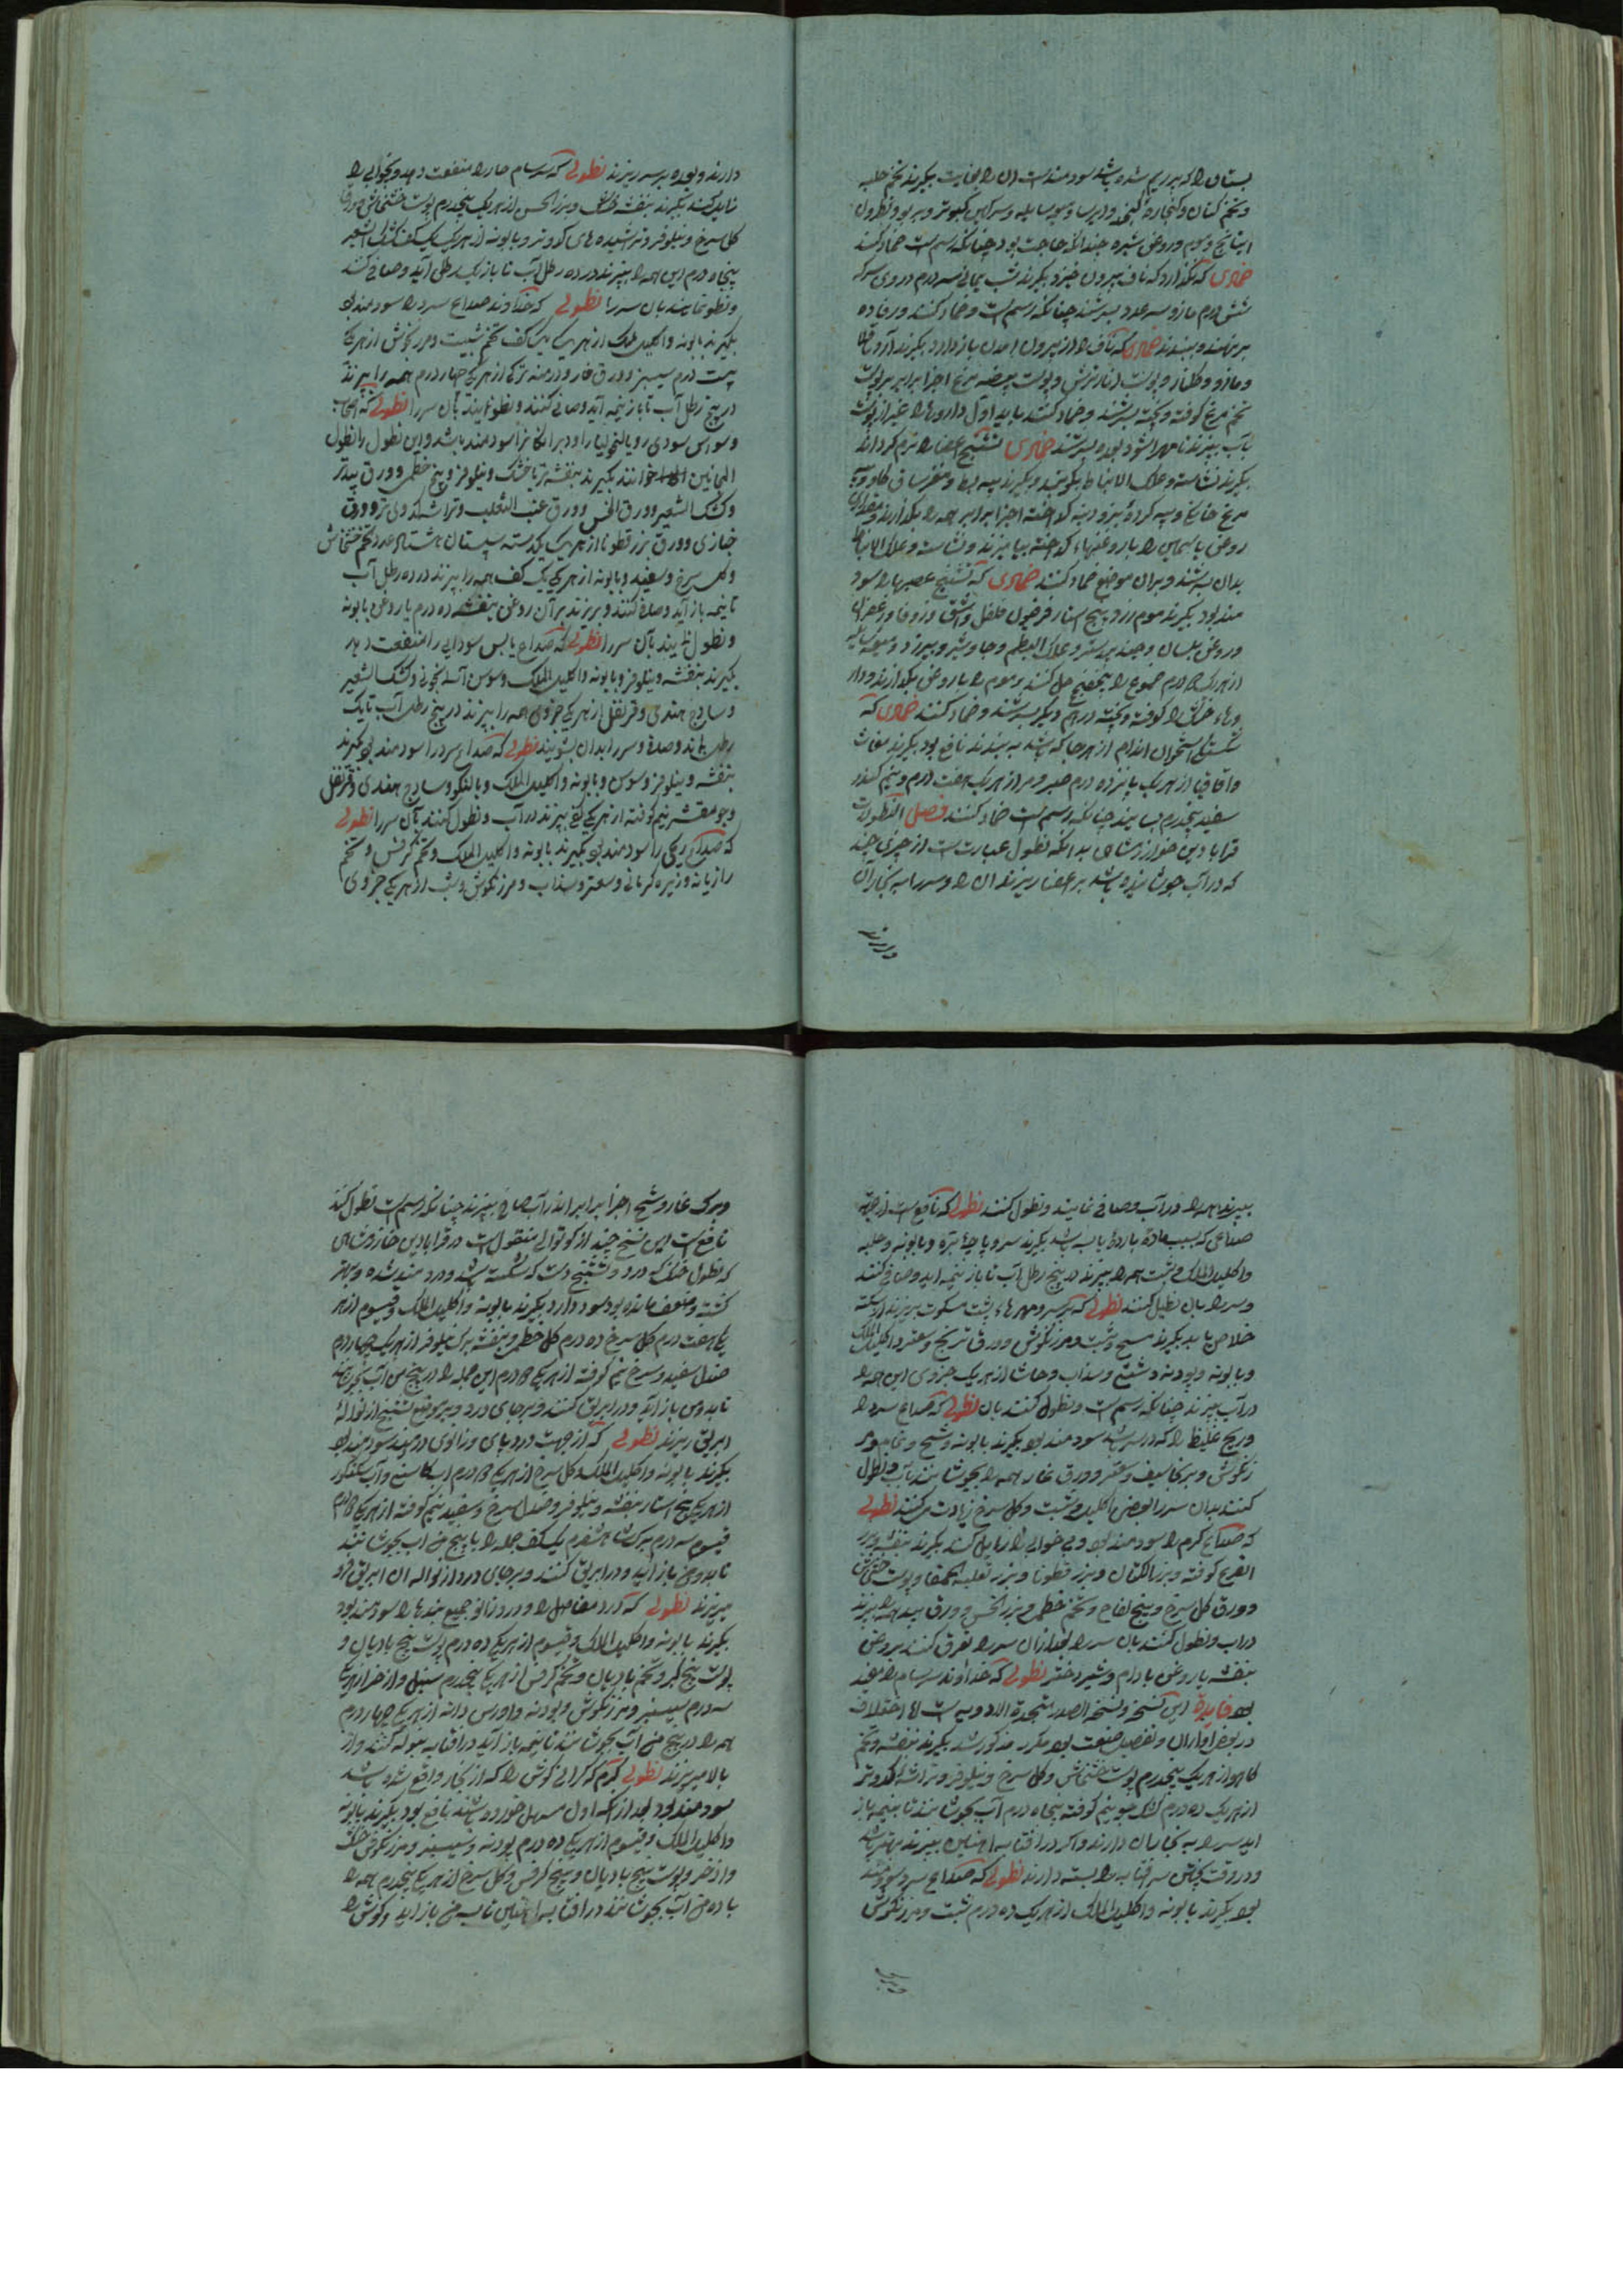 پستان را که بر ریم شده باشد سودمند است آن را بغایت بگیرند تخم حلبه
و تخم کتان و کنجاره کنجد و دیرسا و سرکین کبوتر و نطرون
راتیانج و موم و روغن شیره چندانکه حاجت بود چنانکه رسم است ضماد کنند
ضمادی که نگذارد که ناف بیرون خیزد بگیرند شب یمانی سه درم دردی سرکه
شش درم مازو سه عدد بسرشند چنانکه رسم است و ضماد کنند و رفاده
بر نهند و ببندند ضمادی که ناف را از بیرون آمدن باز دارد بگیرند
و مازو و گلنار و پوست انار ترش و پوست بیضه مرغ اجزا برابر
تخم مرغ کوفته و پخته بسرشند و ضماد کنند باید اول داروها را غیر از پوست
بآب بپزند تا مهرا شود بعده بسرشند ضمادی تشنج اعضا را نرم گرداند
بگیرند نشاسته و علک الانباط بکوبند و بگیرند پیه بط و مغز ساق گاو
مرغ خانگی و پیه گرده بز و دنبه گداخته اجزا برابر همه را بگدازند
روغن یاسمین را با روغنهاء گداخته بیامیزند و نشاسته و علک الانباط
بدان بسرشند و بران موضع ضماد کنند ضمادی که تشنج عصبها را سود
مند بود بگیرند موم زرد پنج استار فرفیون فلفل و اشق و زوفا و زعفران
و روغن بلسان و جندبیدستر و علک البطم و جاوشیر و بیرزد و میعه سایله
از هر یک درم صموغ را حل کنند و موم را با روغن بگدازند و دار
وهاء خشک را کوفته و بیخته در هم دیگر بسرشند و ضماد کنند ضمادی که
شکستگی استخوان اندام از هر جا که باشد به بندند نافع بود بگیرند مغاث
و اقاقیا از هر یک پانزده درم صبر و مر از هر یک هفت درم و نیم کندر
سفید پنجدرم بسایند چنانکه رسم است ضماد کنند فصل النطولات
قرابادین خوارزمشاهی بدانکه نطول عبارتست از چیزی چند
که در آب جوشانیده باشد بر اعضا ریزند آن را و سر را به بخار آن
دارند
دارند و بعده بر سر ریزند نطولی که سرسام حار را منفعت دهد و بیخوابی را
زایل کند بگیرند بنفشه خشک و بزر الخس از هر یک پنجدرم پوست خشخاش
گل سرخ و نیلوفر و تراشیده های کدو تر و بابونه از هر یک یک کف کشک الشعیر
پنجاه درم این همه را بپزند در ده رطل آب تا بازیک رطل آید و صافی کنند
و نطول نمایند بآن سر را نطولی که خداوند صداع سرد را سودمند بود
بگیرند بابونه و اکلیل الملک از هر یک یک کف تخم شبت و مرزنجوش از هر یک
بیست درم سیسنبر و ورق غار و درمنه ترکی از هر یکی چهار درم همه را بپزند
در پنج رطل آب تا باز نیمه آید و صافی کنند و نطول نمایند بآن سر را نطولی که اصحاب
وسواس سوداوی و مالیخولیا را سودمند باشد و این نطول را نطول
المجانین خوانند بگیرند بنفشه تر یا خشک و نیلوفر و بیخ خطمی و ورق بید تر
و کشک الشعیر و ورق الخس و ورق عنب الثعلب و تراشه کدوی تر و ورق
خبازی و ورق بزرقطونا از هر یک یکدسته سپستان هشتاد عدد تخم خشخاش
و گل سرخ و سفید و بابونه از هر یکی یک کف همه را بپزند در ده رطل آب
تا نیمه باز آید و صاف کنند و بریزند بر آن روغن بنفشه ده درم یا روغن بابونه
و نطول نمایند بآن سر را نطولی که صداع یابس سودایی را منفعت دهد
بگیرند بنفشه و نیلوفر و بابونه و اکلیل الملک و سوسن آسمانجونی و کشک الشعیر
و سادج هندی و قرنفل از هر یکی جزوی همه را بپزند در پنج رطل آب تا یک
رطل بماند و صاف و سر را بدان بشویند نطولی که صداع سرد را سودمند بود بگیرند
بنفشه و نیلوفر و سوسن و بابونه و اکلیل الملک و بالنگو و سادج هندی و قرنفل
و جو مقشر نیم کوفته از هر یکی کفی بپزند در آب و نطول کنند بآن سر را نطولی
که صداع ریحی را سودمند بود بگیرند بابونه و اکلیل الملک و تخم کرفس و تخم
رازیانه و زیره کرمانی و سعتر و سذاب و مرزنگوش و شبت از هر یکی جزوی
بپزند همه را در آب و صافی نمایند و نطول کنند نطولی که نافع است از جهة
صداعی که بسبب مادة بارده یابسه باشد بگیرند سر و پاچه بره و بابونه و حلبه
و اکلیل الملک و شبت همه را بپزند در پنج رطل آب تا باز نیمه آید و صافی کنند
و سر را بآن نطیل کنند نطولی که بر سر و مهرهاء پشت مسکوت بریزند از سکته
خلاص یابد بگیرند شیح و شبت و مرزنگوش و ورق ترنج و سعتر و اکلیل الملک
و بابونه و پودنه و سذاب و حاشا از هر یک جزوی این همه را
در آب بپزند چنانکه رسم است و نطول کنند بآن نطولی که صداع سرد را
و ریح غلیظ را که در سر باشد سودمند بود بگیرند بابونه و شیح و نمام و مر
زنگوش و برنجاسف و سعتر و ورق غار همه را بجوشانند بآب و نطول
کنند بدان سر را و بعضی اکلیل و شبت و گل سرخ زیادت میکنند نطولی
که صداع گرم را سودمند بود و بیخوابی را زایل کند بگیرند بنفشه و بزر
القرع کوفته و بزر الکتان و بزر قطونا و بزر بقلة الحمقا و پوست خشخاش
و ورق گل سرخ و بیخ لفاح و تخم خطمی و بزر الخس و ورق بید همه را بپزند
در آب و نطول کنند بآن سر را بعد از آن سر را غرق کنند بروغن
بنفشه یا روغن بادام و شیر دختر نطولی که خداوند سرسام را مفید
بود فایده این نسخه و نسخه الصدر متحدة الادویه است اما اختلاف
در بعض اوزان و تفصیل صنعت بود مکرر مذکور شد بگیرند بنفشه و تخم
کاهو از هر یک پنجدرم پوست خشخاش و گل سرخ و نیلوفر و تراشه کدو تر
از هر یک ده درم کشک جو نیم کوفته پنجاه درم آب بجوشانند تا بنیمه باز
آید سر را به بخار آن دارند و اگر در افتابه آهنین بپزند بهتر باشد
و در وقت پختن سر افتابه را بسته دارند نطولی که صداع سرد سودمند
بود بگیرند بابونه و اکلیل الملک از هر یک ده درم شبت و مرزنگوش
و برک غار و شیح اجزا برابر اندر آب صافی بپزند چنانکه رسم است نطول کنند
نافع است این نسخ چند از گوتوالی منقول است در قرابادین خوارزمشاهی
که نطول چنانکه درد و تشنج دست که شکسته باشد و درد مند شده و بهتر
گشته و ضعف مانده بود سود دارد بگیرند بابونه و اکلیل الملک و قیسوم از هر
یکی هفت درم گل سرخ ده درم گل خطمی و بنفشه برک نیلوفر از هر یک چهار درم
صندل سفید و سرخ نیم کوفته از هر یکی درم این جمله را در پنج من آب بجوشانند
تا بدو من باز آید و در ابریق کنند و بر جای درد و بر موضع تشنج از لوله
ابریق ریزند نطولی که از جهت درد پای و زانوی دردمند سودمند بود
بگیرند بابونه و اکلیل الملک و گل سرخ از هر یکی درم آب کاسنی و آب
از هر یکی پنج استار بنفشه و نیلوفر و صندل سرخ و سفید نیم کوفته از هر یکی
قیسوم سه درم برک شاهسفرم یک کف جمله را با پنج من آب بجوشانند
تا بدو من باز آید و در ابریق کنند و بر جای درد از لوله آن ابریق فرو
میریزند نطولی که درد مفاصل را و درد زانو و جمیع بندها را سودمند بود
بگیرند بابونه و اکلیل الملک و قیسوم از هر یکی ده درم پوست بیخ بادیان و
پوست بیخ کبر و تخم بادیان و تخم کرفس از هر یکی پنجدرم سنبل و اذخر از هر یکی
سه درم سیسنبر و مرزنگوش و پودنه و اورس دانه از هر یکی چهار درم
همه را در پنج من آب بجوشانند تا بنیمه باز آید در افتابه سوله کنند و از
بالا میریزند نطولی گرم که گرانی گوش را که از بخار واقع شده باشد
سودمند بود بعد از آنکه اول مسهل خورده باشند نافع بود بگیرند بابونه
و اکلیل الملک و قیسوم از هر یکی ده درم پودنه و سیسنبر و مرزنگوش خشک
و اذخر و پوست بیخ بادیان و بیخ کرفس و گل سرخ از هر یکی پنجدرم همه را
با ده من آب بجوشانند در افتابه آهنین تا به من باز آید و گوش را